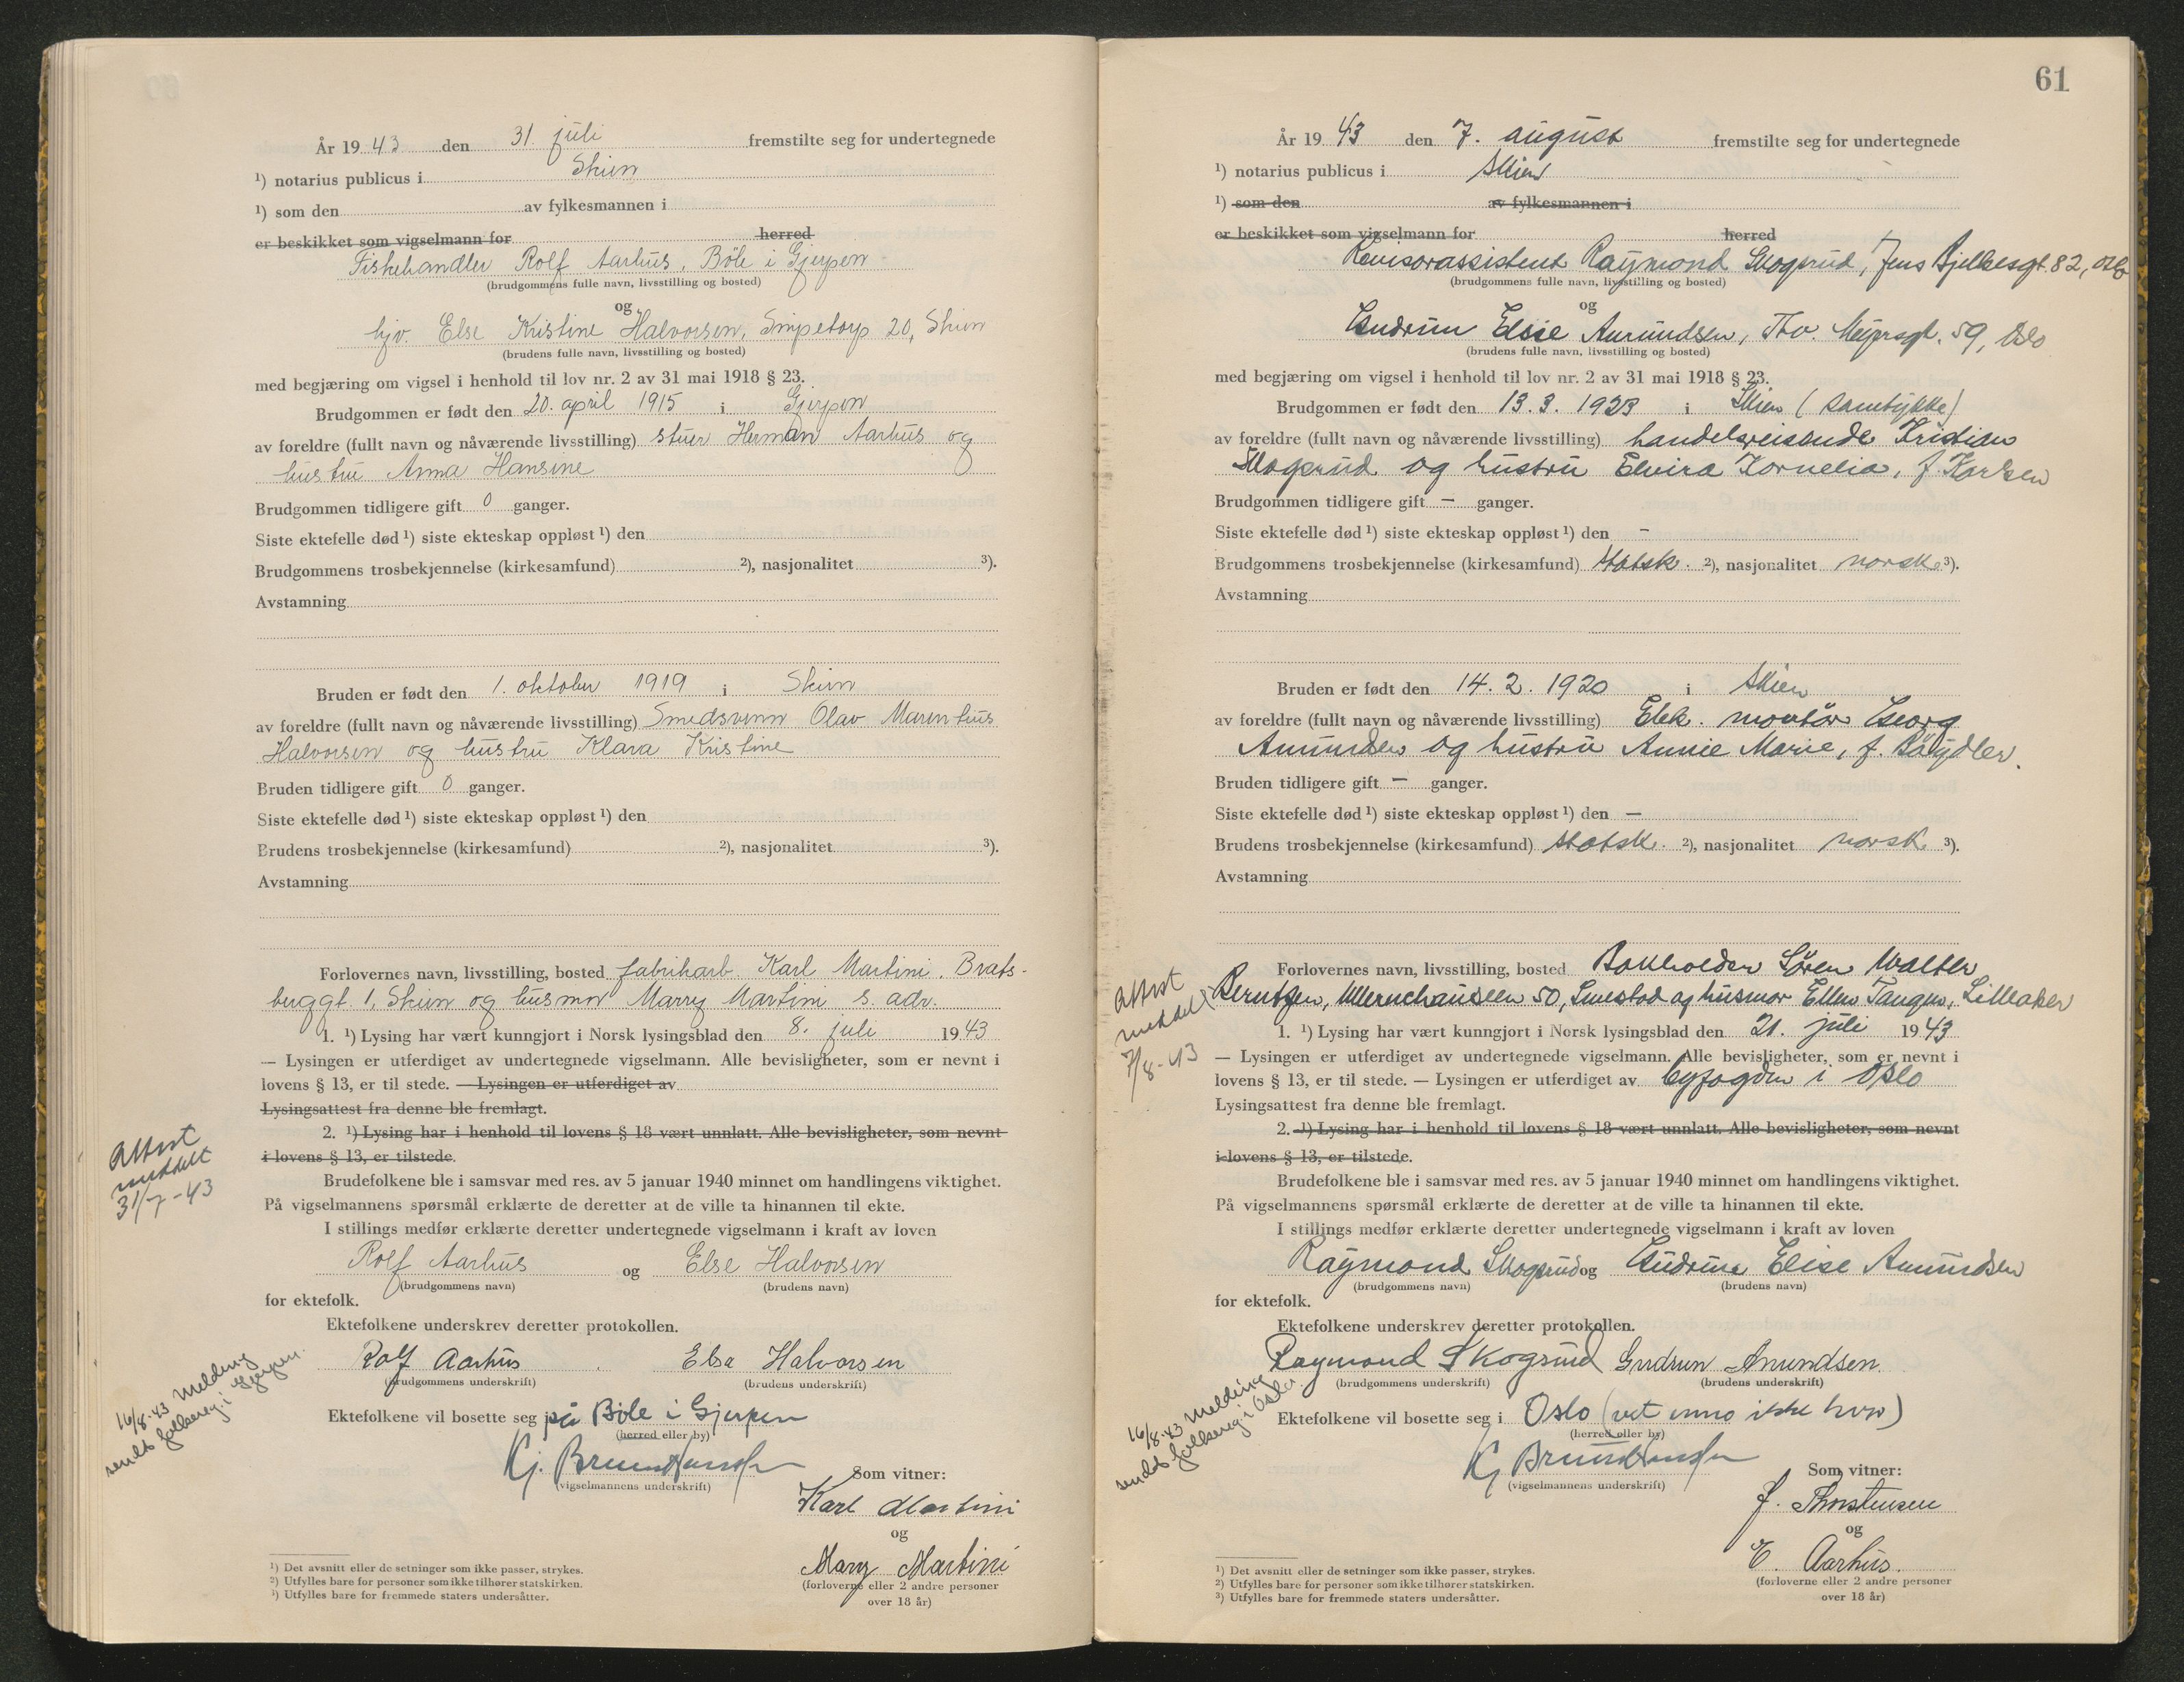 År 19 43 den 31. juli fremstilte seg for undertegnede
¹) notarius publicus i Skien
¹) som den av fylkesmannen i
er beskikket som vigselmann for herred
Fiskehandler Rolf Aarhus, Böle i Gjerpen
(brudgommens fulle navn, livsstilling og bosted)
og
hjv. Else Kristine Halvorsen, Snipetorp 20, Skien
(brudens fulle navn, livsstilling og bosted)
med begjæring om vigsel i henhold til lov nr. 2 av 31 mai 1918 § 23.
Brudgommen er født den 20. april 1915 i Gjerpen
av foreldre (fullt navn og nåværende livsstilling) stuer Herman Aarhus og
hustru Anna Hansine
Brudgommen tidligere gift 0 ganger.
Siste ektefelle død ¹) siste ekteskap oppløst ¹) den
Brudgommens trosbekjennelse (kirkesamfund) ²), nasjonalitet ³).
Avstamning
Bruden er født den 1. oktober 1919 i Skien
av foreldre (fullt navn og nåværende livsstilling) Smedsvenn Olav Marenhus
Halvorsen og hustru Klara Kristine
Bruden tidligere gift 0 ganger.
Siste ektefelle død ¹) siste ekteskap oppløst ¹) den
Brudens trosbekjennelse (kirkesamfund) ²), nasjonalitet ³).
Avstamning
Forlovernes navn, livsstilling, bosted fabrikarb. Karl Martini, Brats-
berggt. 1, Skien og husmor Marry Martini s. adr.
1. ¹) Lysing har vært kunngjort i Norsk lysingsblad den 8. juli 19 43
— Lysingen er utferdiget av undertegnede vigselmann. Alle bevisligheter, som er nevnt i
lovens § 13, er til stede. — Lysingen er utferdiget av
Lysingsattest fra denne ble fremlagt.
2. ¹) Lysing har i henhold til lovens § 18 vært unnlatt. Alle bevisligheter, som nevnt
i lovens § 13, er tilstede.
Attest
meddelt
31/7-43
Brudefolkene ble i samsvar med res. av 5 januar 1940 minnet om handlingens viktighet.
På vigselmannens spørsmål erklærte de deretter at de ville ta hinannen til ekte.
I stillings medfør erklærte deretter undertegnede vigselmann i kraft av loven
Rolf Aarhus og Else Halvorsen
(brudgommens navn) (brudens navn)
for ektefolk.
Ektefolkene underskrev deretter protokollen.
Rolf Aarhus Else Halvorsen
(brudgommens underskrift) (brudens underskrift)
16/8-43 Melding
sendt folkereg. i Gjerpen.
Ektefolkene vil bosette seg på Böle i Gjerpen
(herred eller by)
Kj.
(vigselmannens underskrift)
Som vitner:
Karl Martini
og
Marry Martini
(forloverne eller 2 andre personer
over 18 år)
¹) Det avsnitt eller de setninger som ikke passer, strykes.
²) Utfylles bare for personer som ikke tilhører statskirken.
³) Utfylles bare for fremmede staters undersåtter.
61
År 19 43 den 7. august fremstilte seg for undertegnede
¹) notarius publicus i Skien
¹) som den av fylkesmannen i
er beskikket som vigselmann for herred
Revisorassistent Raymond Skogrud, Jens Bjelkesgt. 82, Oslo
(brudgommens fulle navn, livsstilling og bosted)
og
Gudrun Elise Amundsen, Thv. Meyersgt. 59, Oslo
(brudens fulle navn, livsstilling og bosted)
med begjæring om vigsel i henhold til lov nr. 2 av 31 mai 1918 § 23.
Brudgommen er født den 13. 3. 1923 i Skien (samtykke)
av foreldre (fullt navn og nåværende livsstilling) handelsreisende Kristian
Skogrud og hustru Elvira Kornelia, f. Karlsen
Brudgommen tidligere gift — ganger.
Siste ektefelle død ¹) siste ekteskap oppløst ¹) den —
Brudgommens trosbekjennelse (kirkesamfund) statsk. ²), nasjonalitet norsk ³).
Avstamning
Bruden er født den 14. 2. 1920 i Skien
av foreldre (fullt navn og nåværende livsstilling) Elek. montör Georg
Amundsen og hustru Annie Marie, f.
Bruden tidligere gift — ganger.
Siste ektefelle død ¹) siste ekteskap oppløst ¹) den —
Brudens trosbekjennelse (kirkesamfund) statsk. ²), nasjonalitet norsk ³).
Avstamning
Attest
meddelt
7/8-43
Forlovernes navn, livsstilling, bosted Bokholder Sören Walter
Berntzen, Ullernchauseen 50, Smestad og husmor Ellen Tangen, Lilleaker
1. ¹) Lysing har vært kunngjort i Norsk lysingsblad den 21. juli 19 43
— Lysingen er utferdiget av undertegnede vigselmann. Alle bevisligheter, som er nevnt i
lovens § 13, er til stede. — Lysingen er utferdiget av byfogden i Oslo
Lysingsattest fra denne ble fremlagt.
2. ¹) Lysing har i henhold til lovens § 18 vært unnlatt. Alle bevisligheter, som nevnt
i lovens § 13, er tilstede.
Brudefolkene ble i samsvar med res. av 5 januar 1940 minnet om handlingens viktighet.
På vigselmannens spørsmål erklærte de deretter at de ville ta hinannen til ekte.
I stillings medfør erklærte deretter undertegnede vigselmann i kraft av loven
Raymond Skogrud og Gudrun Elise Amundsen
(brudgommens navn) (brudens navn)
for ektefolk.
Ektefolkene underskrev deretter protokollen.
Raymond Skogrud Gudrun Amundsen
(brudgommens underskrift) (brudens underskrift)
16/8-43 Melding
sendt folkereg. i Oslo.
Ektefolkene vil bosette seg i Oslo (vet enno ikke hvor)
(herred eller by)
Kj
(vigselmannens underskrift)
Som vitner:
J. Thorstensen
og
E. Aarhus.
(forloverne eller 2 andre personer
over 18 år)
¹) Det avsnitt eller de setninger som ikke passer, strykes.
²) Utfylles bare for personer som ikke tilhører statskirken.
³) Utfylles bare for fremmede staters undersåtter.